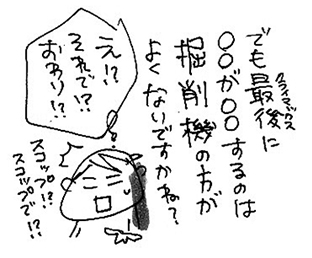 でも最後に
クライマックス
〇〇が〇〇するのは
掘削機の方が
よくないですかね?
え!?
それで!?
おわり!?
スコップ!?
スコップで!?